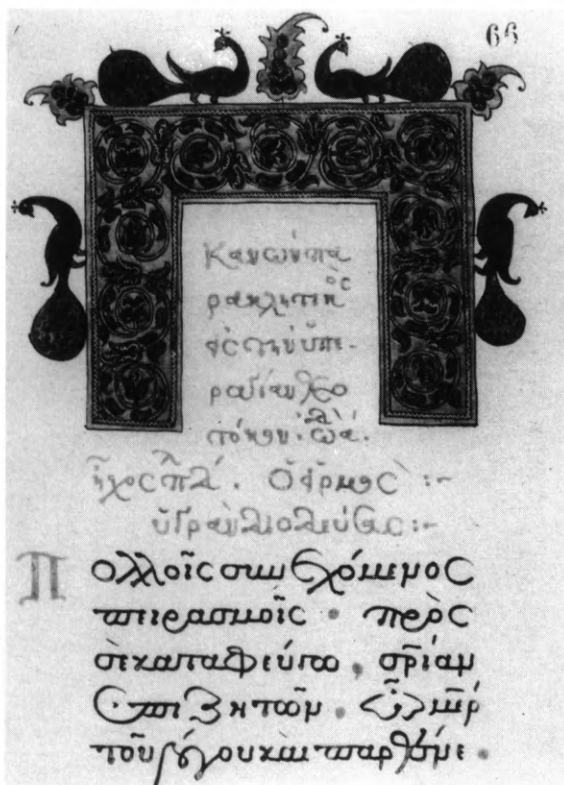 66
Κανὼν πα
ρακλητικὸς
εἰς τὴν ὑπε-
ραγίαν θεο
τόκον. ᾠδ ά.
ἦχος πλ δ. Ὁ εἱρμὸς :-
ὑγρὰν διοδεύσας :-
Πολλοῖς συνεχόμενος
πειρασμοῖς. πρὸς
σὲ καταφεύγω, σρίαν
ἐπιζητῶν. ὦ μερ
τοῦ λόγου καὶ παρθένε.